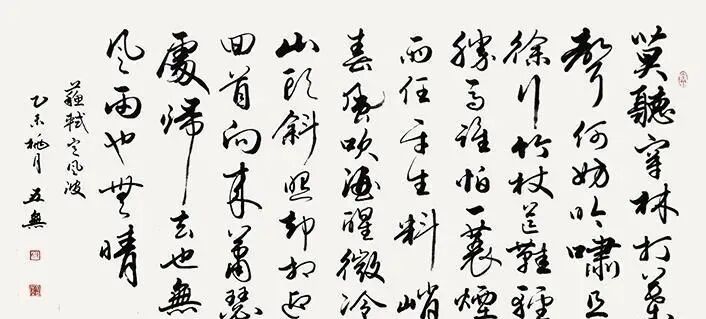 莫聽穿林打葉
聲何妨吟嘯且
徐行竹杖芒鞋輕
勝馬誰怕一蓑煙
雨任平生料峭
春風吹酒醒微冷
山頭斜照卻相迎
回首向來蕭瑟
處歸去也無
風雨也無晴
蘇軾定風波
乙未桃月